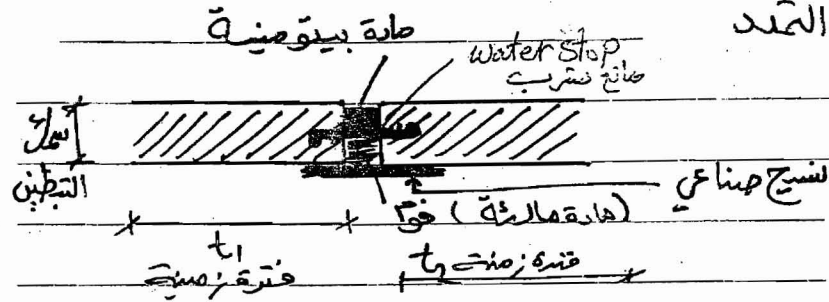 التمدد
مادة بيتومينية
water stop
مانع تسرب
سمك
التبطين
نسيج صناعي
فوم (مادة مالئة)
t1
فترة زمنية
فترة زمنية t2